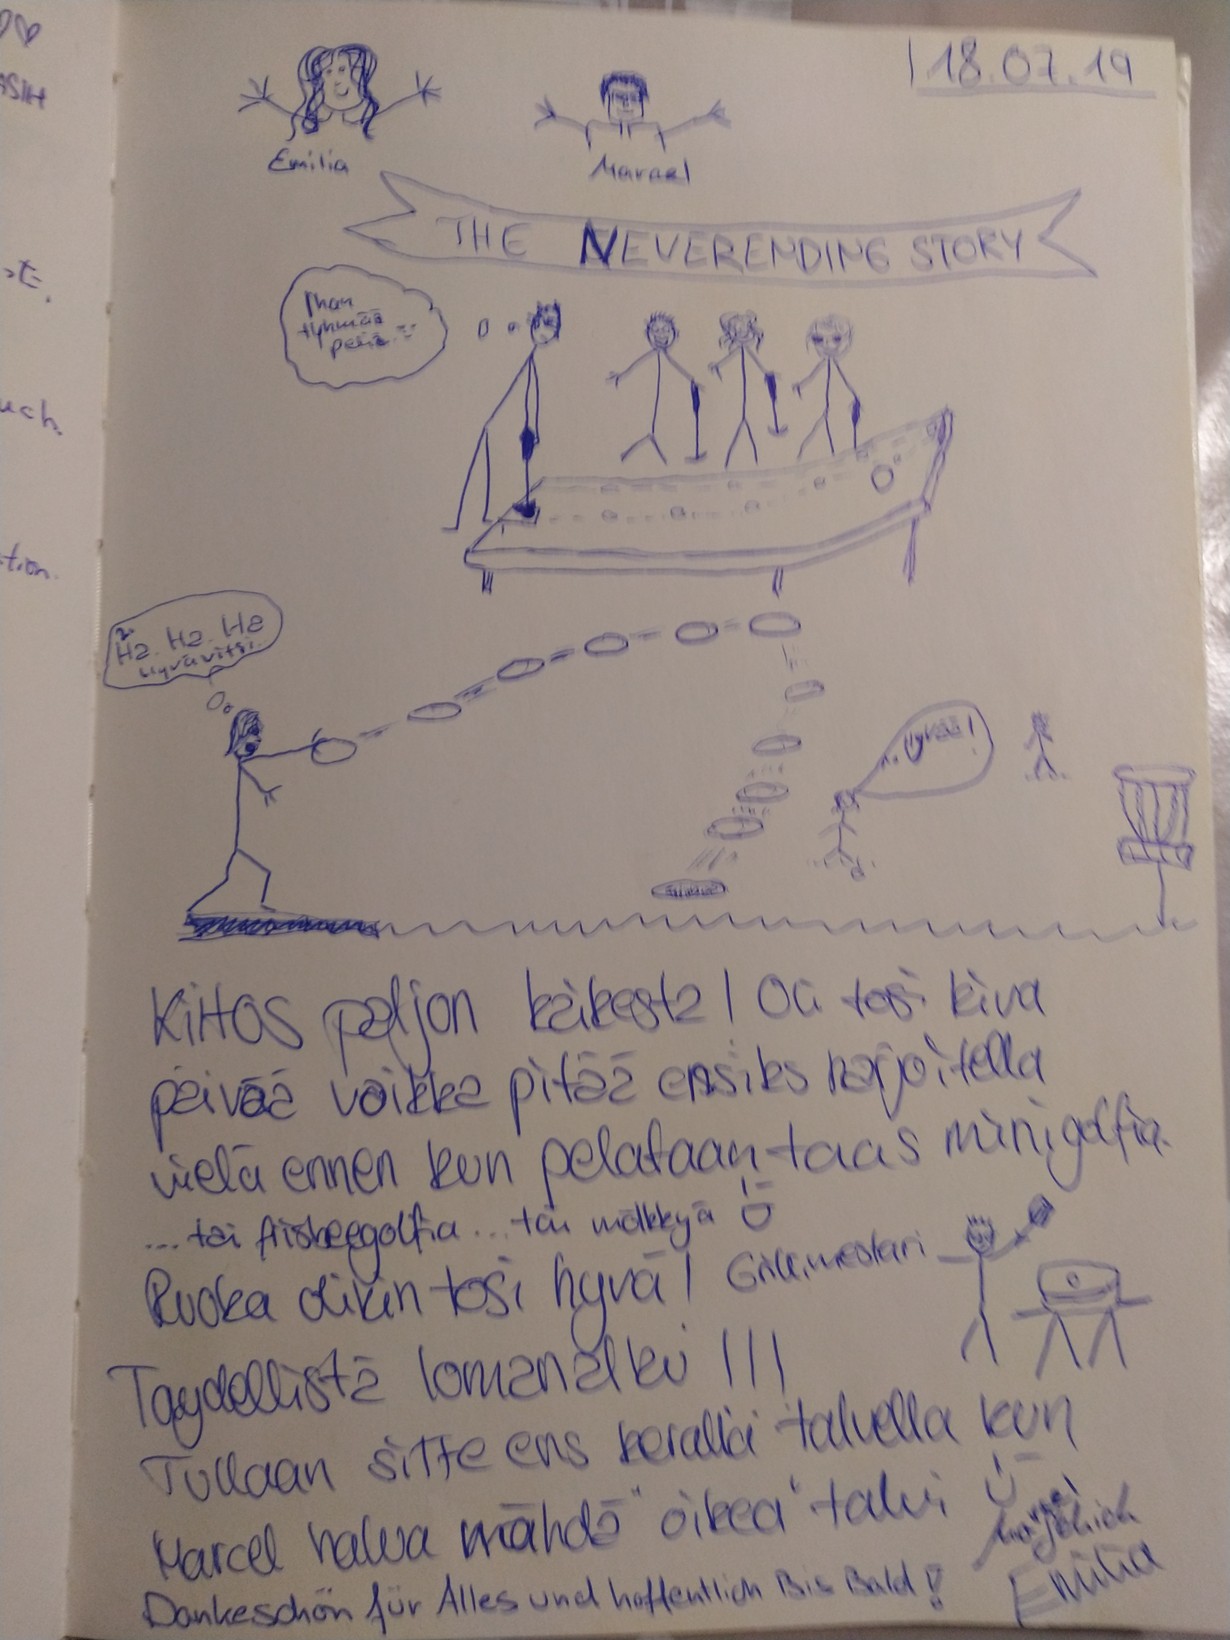 18.07.19
Emilia
Marcel
THE NEVERENDING STORY
Ihan
tyhmää
peliä
Ha. Ha. Ha
Hyvä vitsi.
Hyvää!
Kiitos paljon kaikesta! Oli tosi kiva
päivää vaikka pitää ensiks harjoitella
vielä ennen kun pelataan taas minigolfia.
...tai frisbeegolfia...tai mölkkyä
Ruoka olikin tosi hyvä! Grillimestari
Taydellistä lomanalku !!!
Tullaan sitte ens keralla talvella kun
Marcel halua nähdä "oikea" talvi
Dankeschön für Alles und hoffentlich Bis Bald!
Emilia